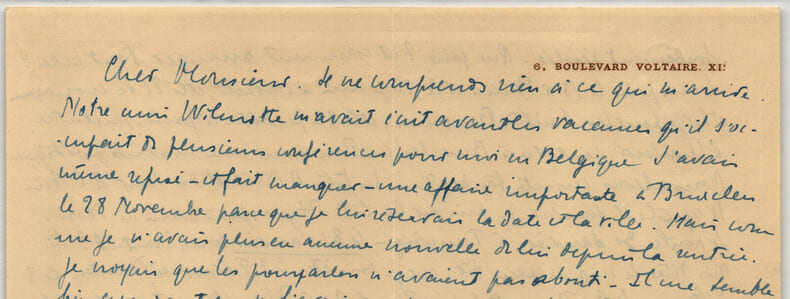 6, BOULEVARD VOLTAIRE. XIᵉ
Cher Monsieur, Je ne comprends rien à ce qui m'arrive.
Notre ami Wilmotte m'avait écrit avant les vacances qu'il s'oc-
cupait de plusieurs conférences pour moi en Belgique J'avais
même refusé - et fait manquer - une affaire importante à Bruxelles
le 28 Novembre parce que je lui réservais la date et la ville. Mais com
me je n'avais plus eu aucune nouvelle de lui depuis la rentrée.
je croyais que les pourparlers n'avaient pas abouti - Il me semble